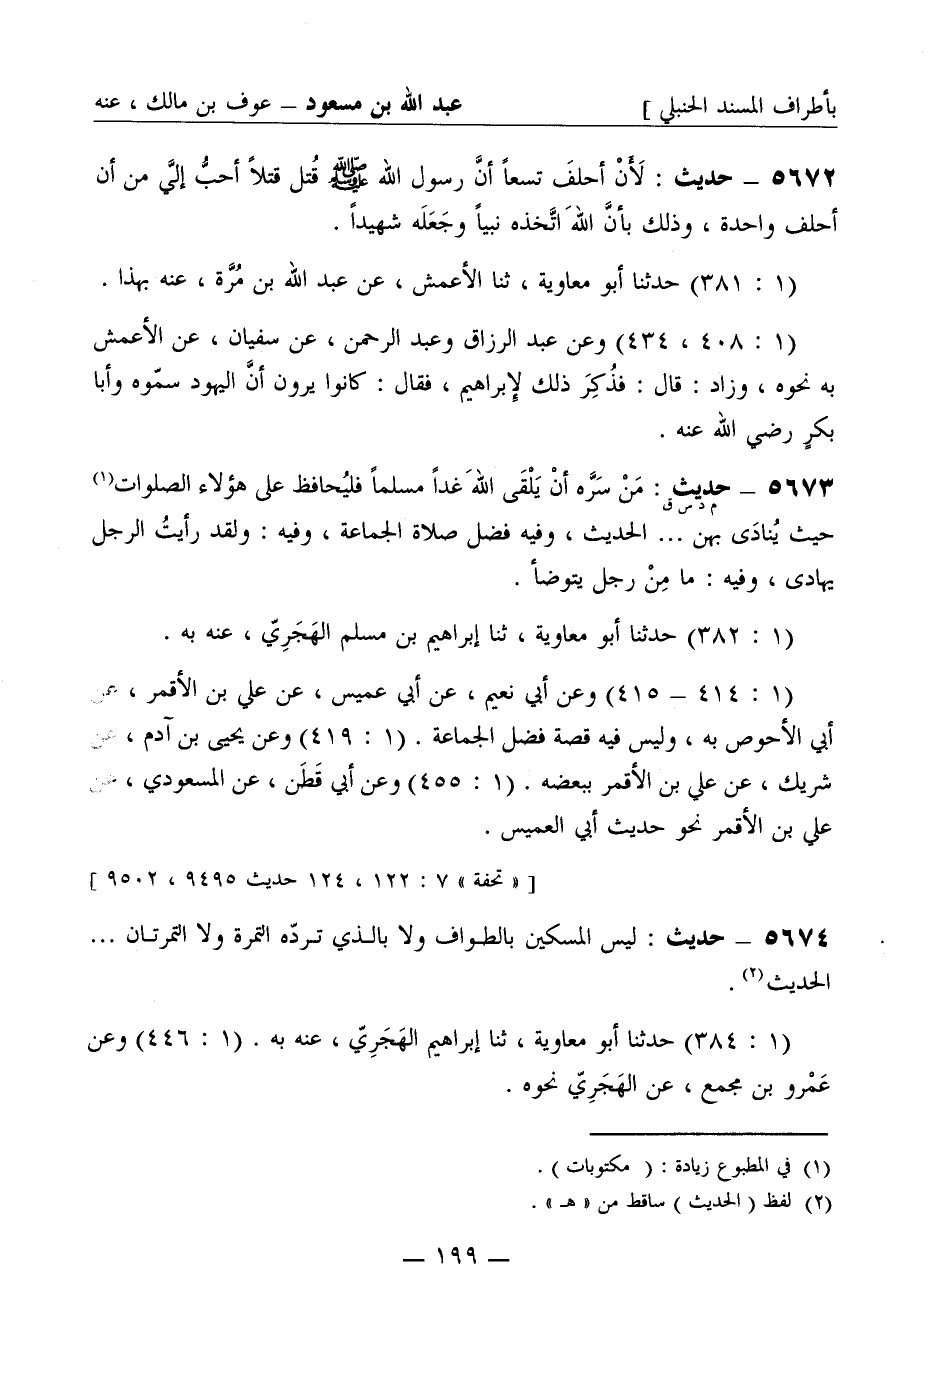 بأطراف المسند الحنبلي ] عبد الله بن مسعود – عوف بن مالك ، عنه
٥٦٧٢ – حديث : لَأَنْ أحلفَ تسعاً أنَّ رسول الله ﷺ قُتل قتلاً أحبُّ إليَّ من أن
أحلف واحدة ، وذلك بأنَّ اللهَ اتَّخذه نبياً وجَعَلَه شهيداً .
(١ : ٣٨١) حدثنا أبو معاوية ، ثنا الأعمش ، عن عبد الله بن مُرَّة ، عنه بهذا .
(١ : ٤٠٨ ، ٤٣٤) وعن عبد الرزاق وعبد الرحمن ، عن سفيان ، عن الأعمش
به نحوه ، وزاد : قال : فذُكِرَ ذلك لإبراهيم ، فقال : كانوا يرون أنَّ اليهود سمّوه وأبا
بكرٍ رضي الله عنه .
٥٦٧٣ – حديث : مَنْ سَرَّه أنْ يَلْقَى اللهَ غداً مسلماً فليُحافظ على هؤلاء الصلوات(١)
م د س ق
حيث يُنادَى بهن ... الحديث ، وفيه فضل صلاة الجماعة ، وفيه : ولقد رأيتُ الرجل
يهادى ، وفيه : ما مِنْ رجل يتوضأ .
(١ : ٣٨٢) حدثنا أبو معاوية ، ثنا إبراهيم بن مسلم الهَجَرِيّ ، عنه به .
(١ : ٤١٤ – ٤١٥) وعن أبي نعيم ، عن أبي عميس ، عن علي بن الأقمر ، عن
أبي الأحوص به ، وليس فيه قصة فضل الجماعة . (١ : ٤١٩) وعن يحيى بن آدم ، عن
شريك ، عن علي بن الأقمر ببعضه . (١ : ٤٥٥) وعن أبي قَطَن ، عن المسعودي ، عن
علي بن الأقمر نحو حديث أبي العميس .
[ « تحفة » ٧ : ١٢٢ ، ١٢٤ حديث ٩٤٩٥ ، ٩٥٠٢ ]
٥٦٧٤ – حديث : ليس المسكين بالطواف ولا بالذي تردّه التمرة ولا التمرتان ...
الحديث(٢) .
(١ : ٣٨٤) حدثنا أبو معاوية ، ثنا إبراهيم الهَجَرِيّ ، عنه به . (١ : ٤٤٦) وعن
عَمْرو بن مجمع ، عن الهَجَرِيّ نحوه .
(١) في المطبوع زيادة : ( مكتوبات ) .
(٢) لفظ ( الحديث ) ساقط من « هـ » .
– ١٩٩ –